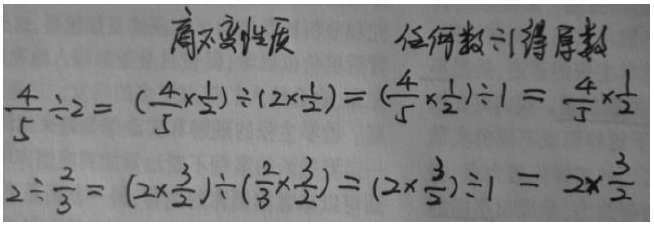 商不变性质 任何数÷1得原数
4/5÷2=(4/5×1/2)÷(2×1/2)=(4/5×1/2)÷1=4/5×1/2
2÷2/3=(2×3/2)÷(2/3×3/2)=(2×3/2)÷1=2×3/2